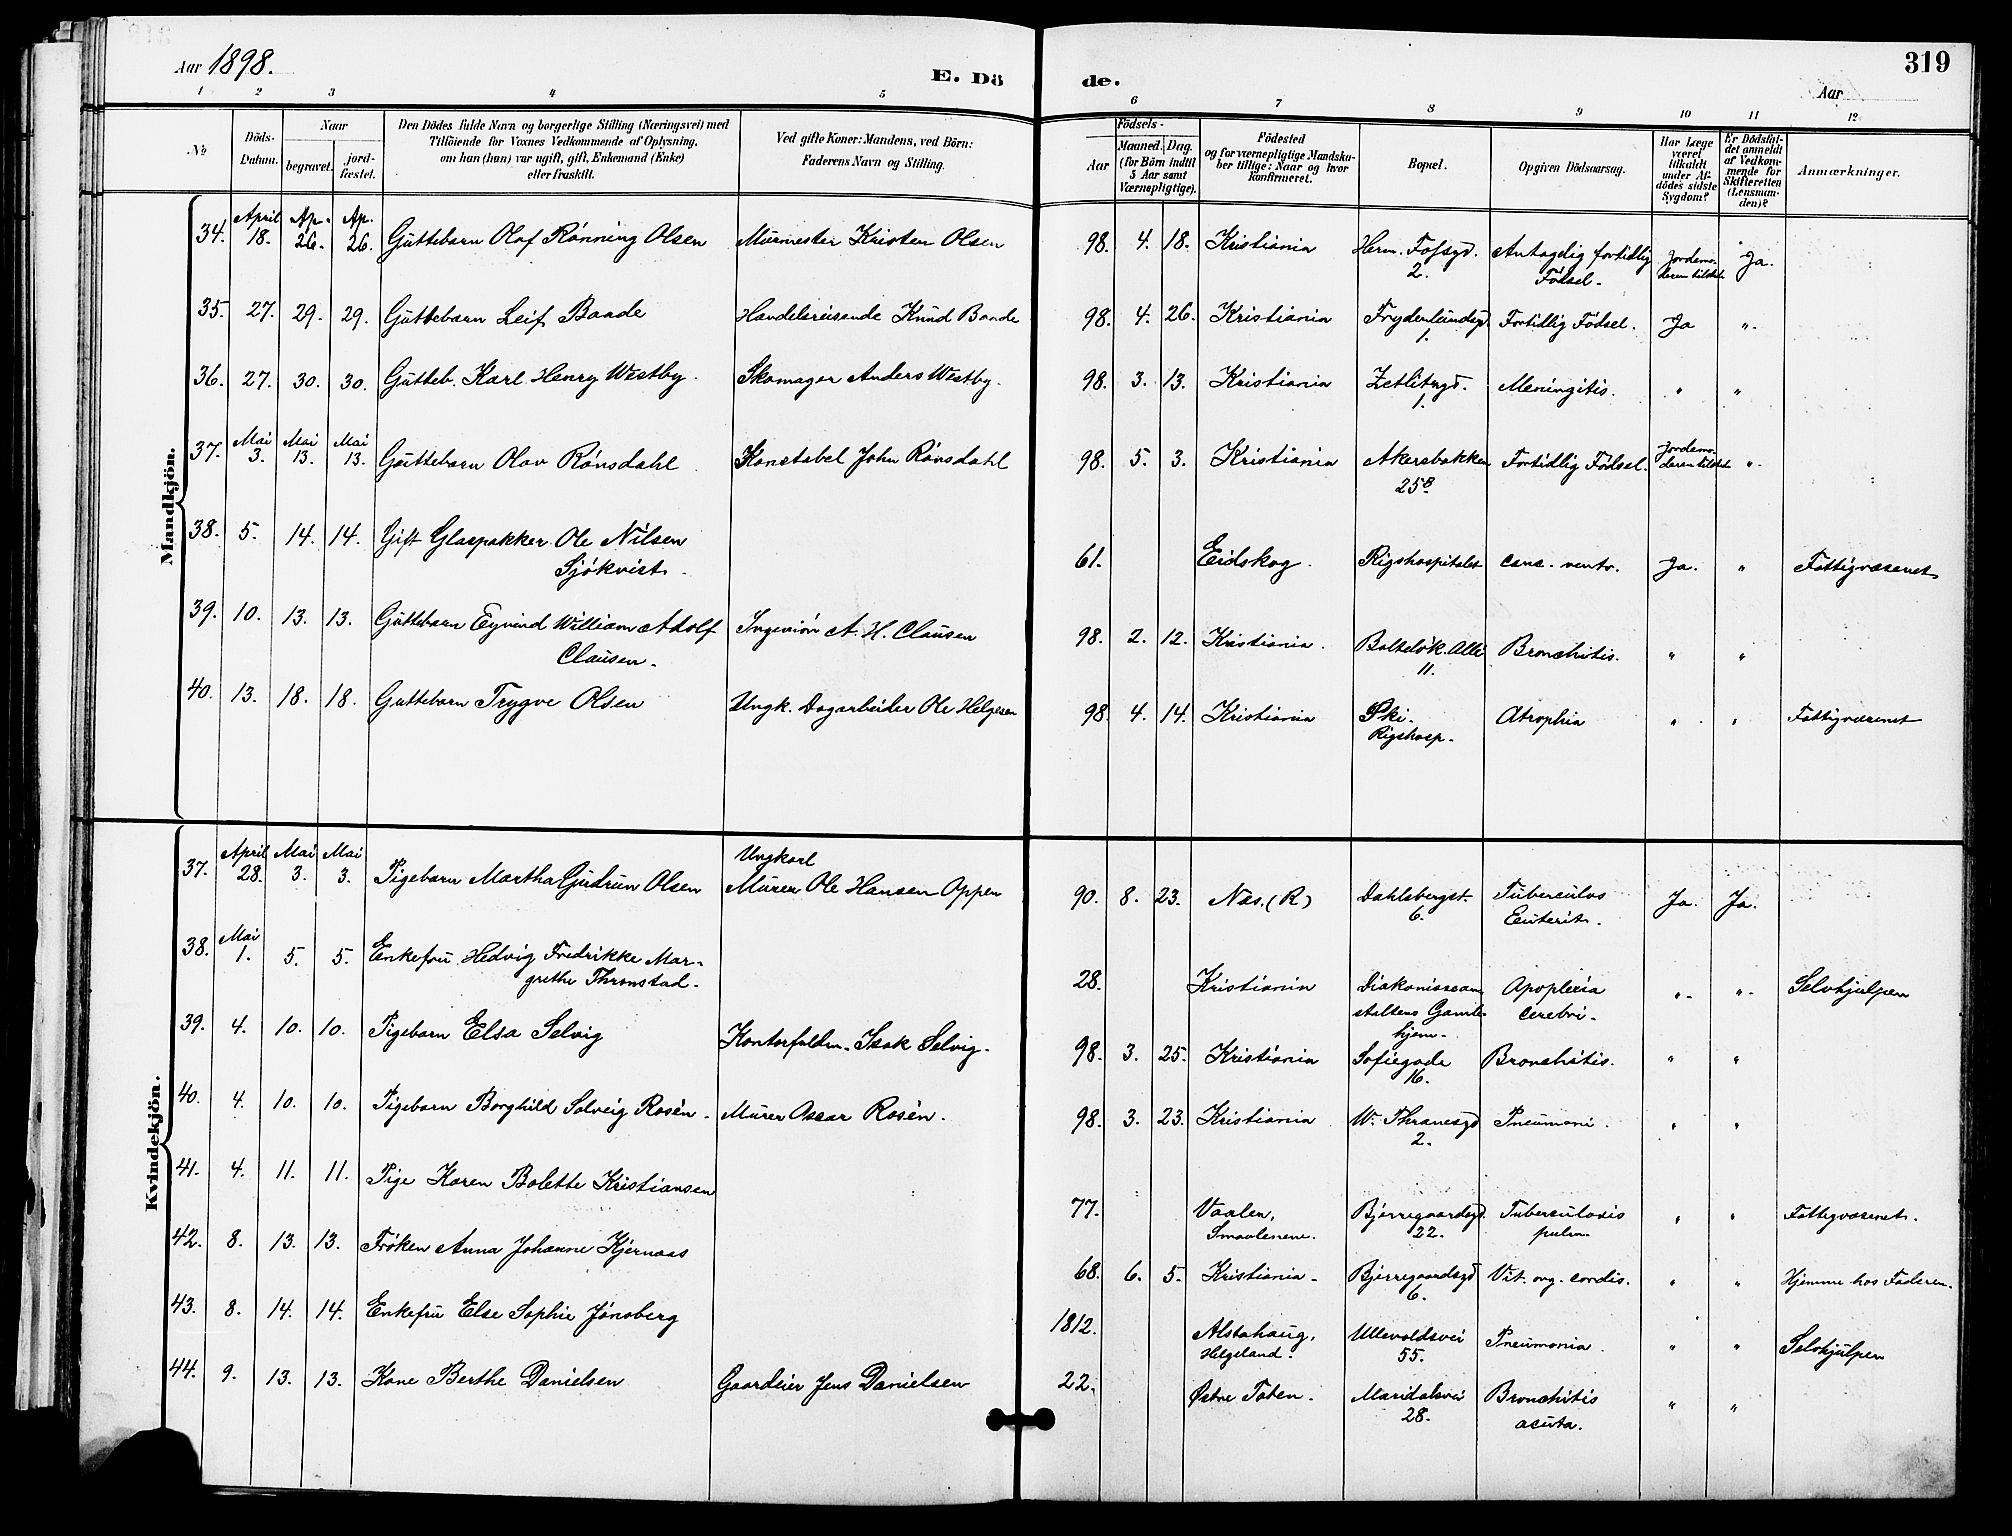 Aar 1898.
E. Dö
de.
319
Aar
1 2 3 4 5 6 7 8 9 10 11 12
No
Döds-Datum.
Naar
begravet.
jord-fæstet.
Den Dödes fulde Navn og borgerlige Stilling (Næringsvei) med
Tilföiende for Voxnes Vedkommende af Oplysning,
om han (hun) var ugift, gift, Enkemand (Enke)
eller fraskilt.
Ved gifte Koner: Mandens, ved Börn:
Faderens Navn og Stilling.
Födsels-
Aar
Maaned. Dag.
(for Börn indtil
5 Aar samt
Værnepligtige).
Födested
og for værnepligtige Mandska-
ber tillige: Naar og hvor
konfirmeret.
Bopæl.
Opgiven Dödsaarsag.
Har Læge
været
tilkaldt
under Af-
dödes sidste
Sygdom?
Er Dödsfal-
det anmeldt
af Vedkom-
mende for
Skifteretten
(Lensman-
den)?
Anmærkninger.
Mandkjön.
34. April 18. Ap. 26. Ap. 26. Guttebarn Olaf Rønning Olsen Murmester Kristen Olsen 98. 4. 18. Kristiania Herm. Fossgd. 2. Antagelig fortidlig Fødsel. Jordemoderen tilstede Ja.
35. 27. 29. 29. Guttebarn Leif Baade Handelsreisende Knud Baade 98. 4. 26. Kristiania Frydenlundsgd. 1. Fortidlig Fødsel. Ja ".
36. 27. 30. 30. Gutteb. Karl Henry Westby. Skomager Anders Westby. 98. 3. 13. Kristiania Zetlitzgd. 1. Meningitis. " "
37. Mai 3. Mai 13. Mai 13. Guttebarn Olav Rønsdahl Konstabel John Rønsdahl 98. 5. 3. Kristiania Akersbakken 25B. Fortidlig Fødsel. Jordemoderen tilstede ".
38. 5. 14. 14. Gift Glaspakker Ole Nilsen
Sjøkvist. 61. Eidskog. Rigshospitalet canc. ventr. Ja. " Fattigvæsenet
39. 10. 13. 13. Guttebarn Eyvind William Adolf
Clausen. Ingeniør A. H. Clausen 98. 2. 12. Kristiania. Bolteløk. Allé 11. Bronchitis. " "
40. 13. 18. 18. Guttebarn Trygve Olsen Ungk. Dagarbeider Ole Helgesen 98. 4. 14. Kristiania Ski. Rigshosp. Atrophia " " Fattigvæsenet
Kvindekjön.
37. April 28. Mai 3. Mai 3. Pigebarn Martha Gudrun Olsen Ungkarl
Murer Ole Hansen Oppen 90. 8. 23. Næs. (R) Dahlsbergst. 6. Tuberculos Enterit. Ja. Ja.
38. Mai 1. 5. 5. Enkefru Hedvig Fredrikke Mar-
grethe Thronstad. 28. Kristiania Diakonissean
staltens Gamle
hjem. Apoplexia cerebri. ". ". Selvhjulpen
39. 4. 10. 10. Pigebarn Elsa Selvig Kontorfuldm. Isak Selvig. 98. 3. 25. Kristiania Sofiegade 16. Bronchitis. " "
40. 4. 10. 10. Pigebarn Borghild Solveig Rosén. Murer Oscar Rosén. 98. 3. 23. Kristiania W. Thranesgd 2. Pneumoni. " "
41. 4. 11. 11. Pige Karen Bolette Kristiansen 77. Vaaler, Smaalenene. Bjerregaardsgd. 22. Tuberculosis pulm. " " Fattigvæsenet.
42. 8. 13. 13. Frøken Anna Johanne Kjernaas 68. 6. 5. Kristiania. Bjerregaardsgd 6. Vit. org. cordis. " " Hjemme hos Faderen.
43. 8. 14. 14. Enkefru Else Sophie Jønsberg 1812. Alstahaug, Helgeland. Ullevoldsvei 55. Pneumonia. " " Selvhjulpen
44. 9. 13. 13. Kone Berthe Danielsen Gaardeier Jens Danielsen 22. Østre Toten. Maridalsvei 28. Bronchitis acuta. " "